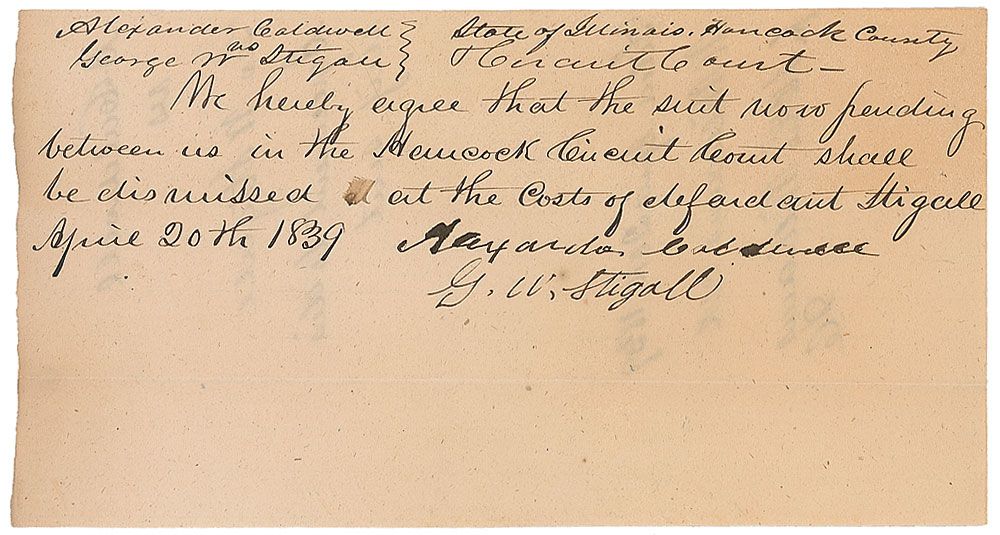 Alexander Caldwell } State of Illinois. Hancock County
vs
George W Stigall } Circuit Court —
We hereby agree that the suit now pending
between us in the Hancock Circuit Court shall
be dismissed at the Costs of defendant Stigall
April 20th 1839 Alexander Caldwell
G. W. Stigall